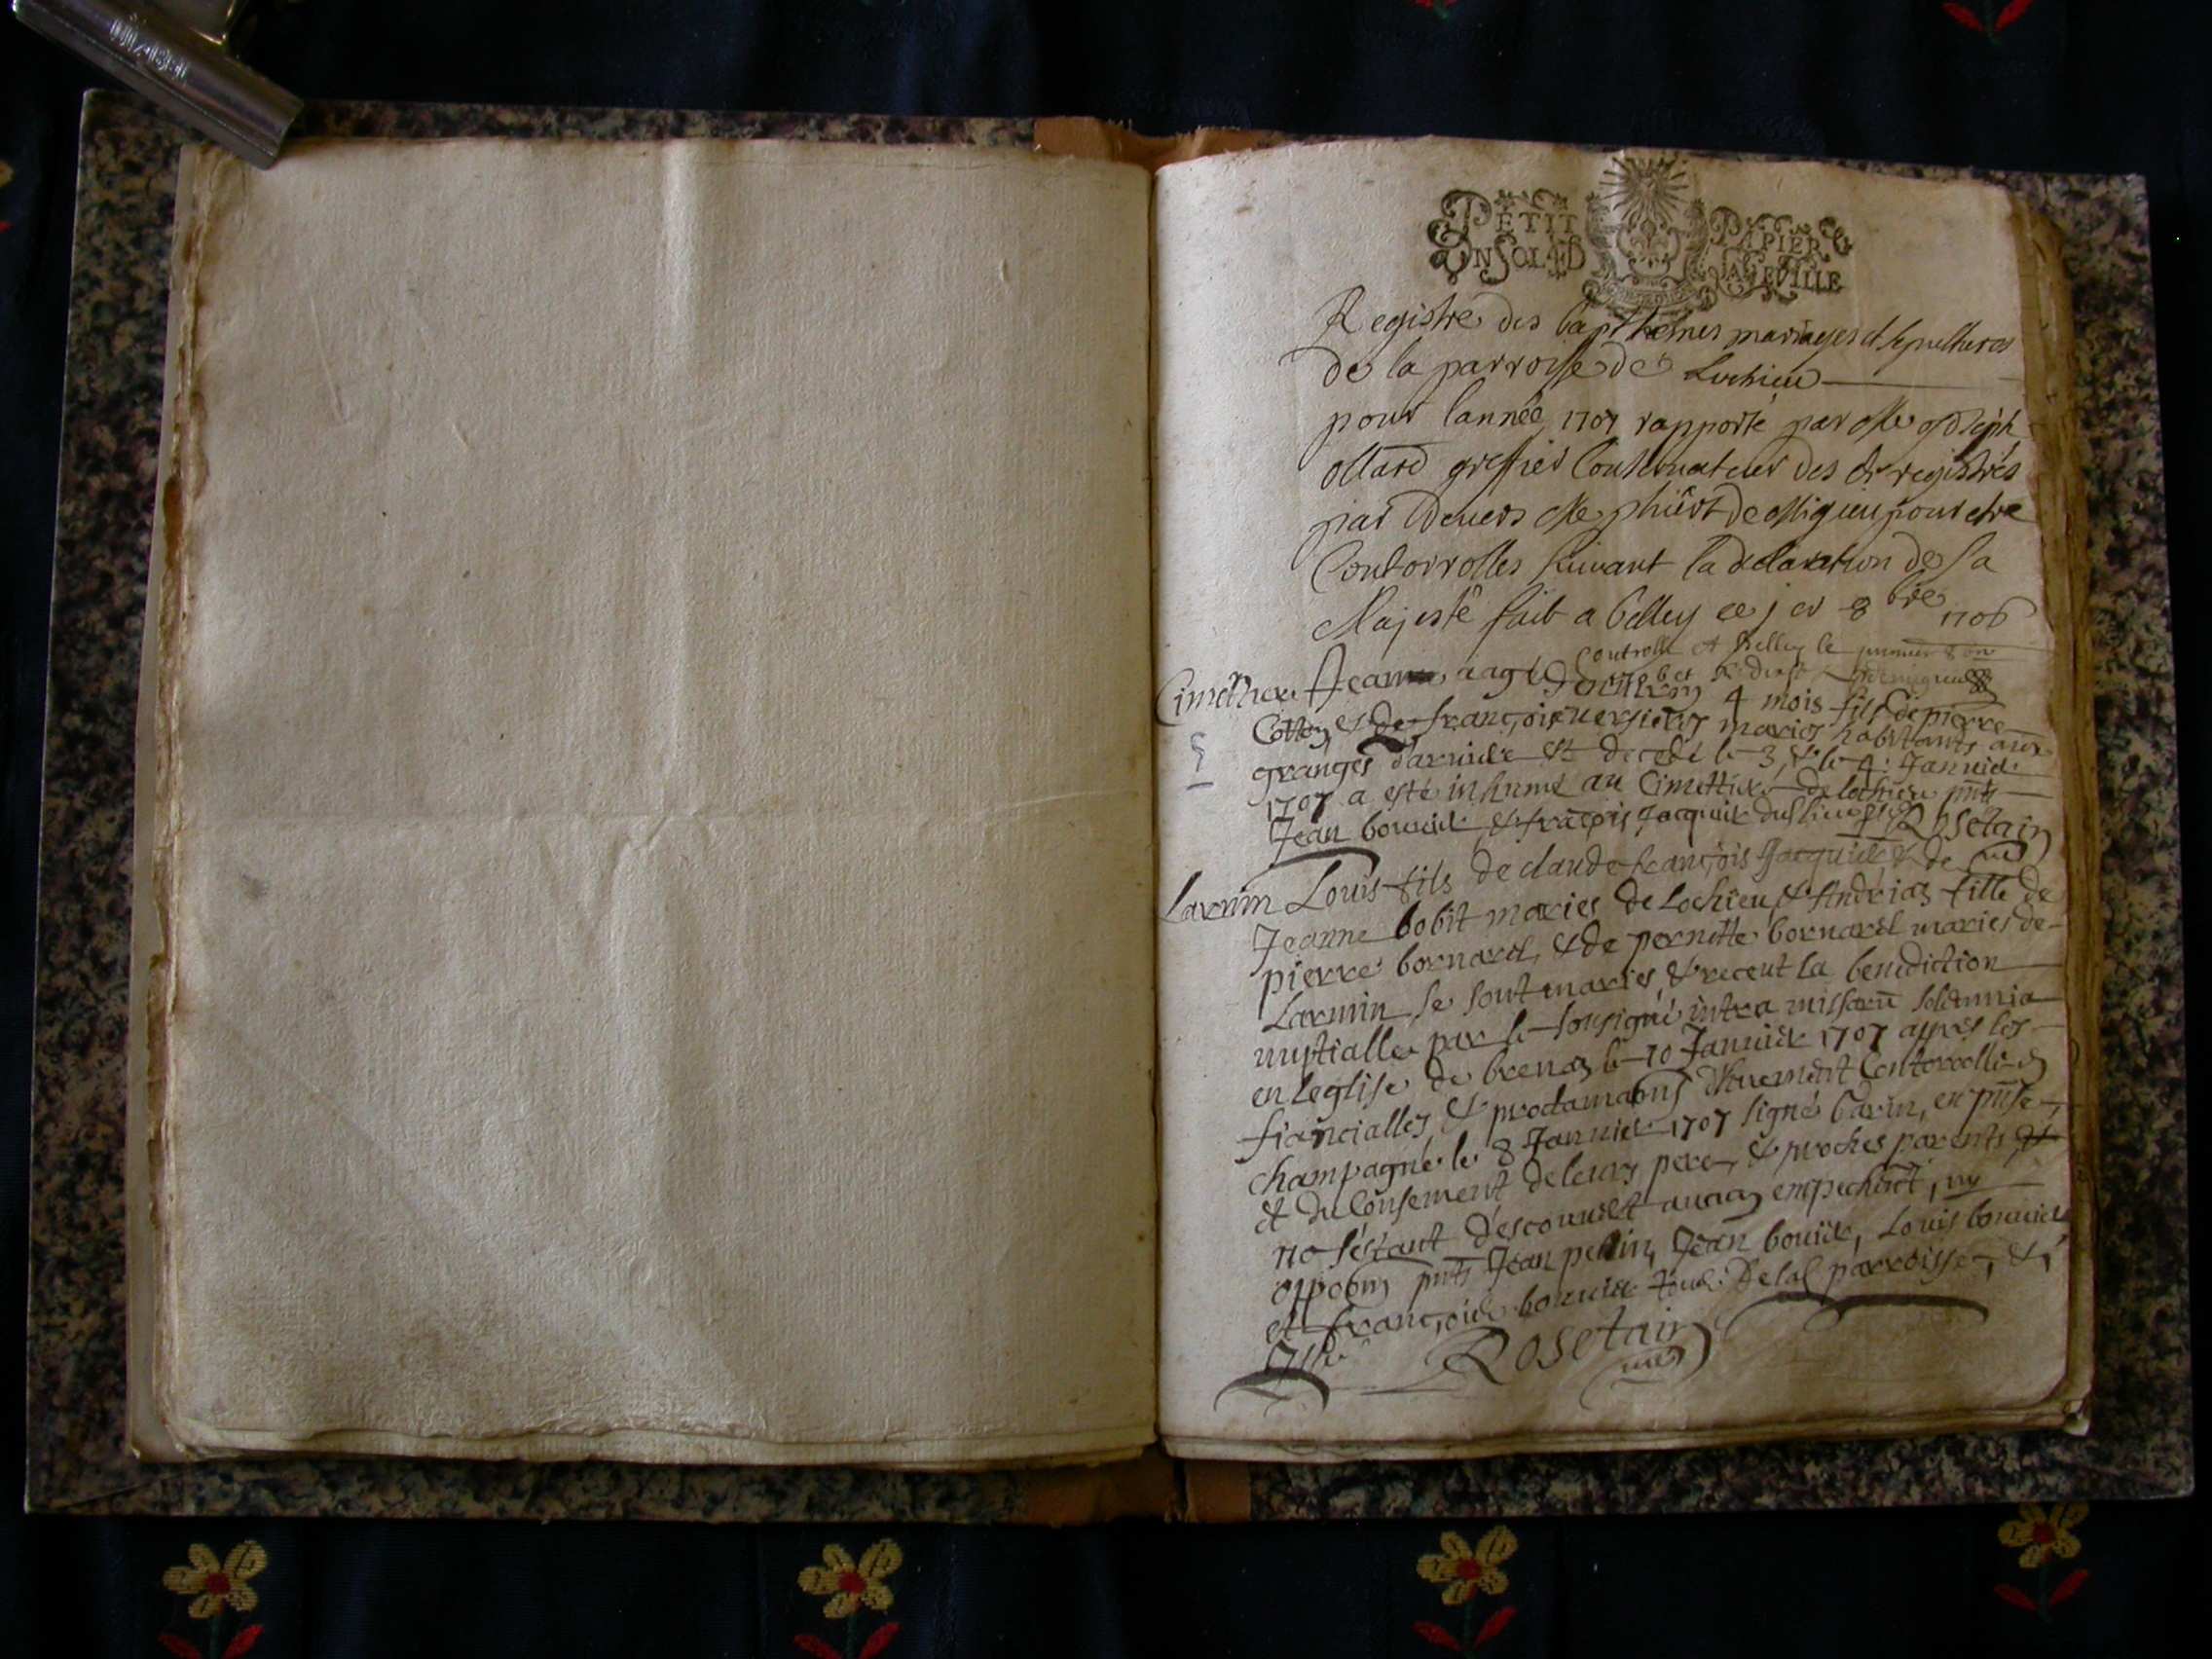 PETIT PAPIER
UN SOL 4 D LA FEVILLE
Registre des bapthemes mariages et sepultures
de la parroisse de Lochieu
pour lannée 1707 rapporté par Me Joseph
greffier Conservateur des dts registres
par devers Me pour etre
Contorrolles suivant la declaration de sa
Majesté fait a belley ce j er 8bre 1706
Controllé A Belley le premier 8
Cimettiere Jean aagé denviron 4 mois fils de pierre
Cotton et de françoise mariés habitants aux
granges est decedé le 3, & le 4 Janvier
1707 a esté inhumé au Cimettiere de lochieu pnts
Jean bouvier & françois Jacquier dud lieu Rosetain
curé
Larmin Louis fils de claude françois Jacquier & de
Jeanne bobit mariés de Lochieu, & Andrias fille de
pierre bornard, & de pernette bornard mariés de
Larmin se sont mariés, & receut la benediction
nuptialle par le sousigné intra missarū solemnia
en leglise de brenas le 10 Janvier 1707 apprés les
fiancialles, & proclamaons deuement Contorrollé en
champagne le 8 Janvier 1707 signé Carin, en pnse
et du Consement de leurs pere, & proches parents
no s'estant descouvert aucun empechmt, ny
oppoōn pnts Jean pellin, Jean bouvier, Louis bouvier
et françois bouvier tous de lad parroisse, &
Rosetain
curé